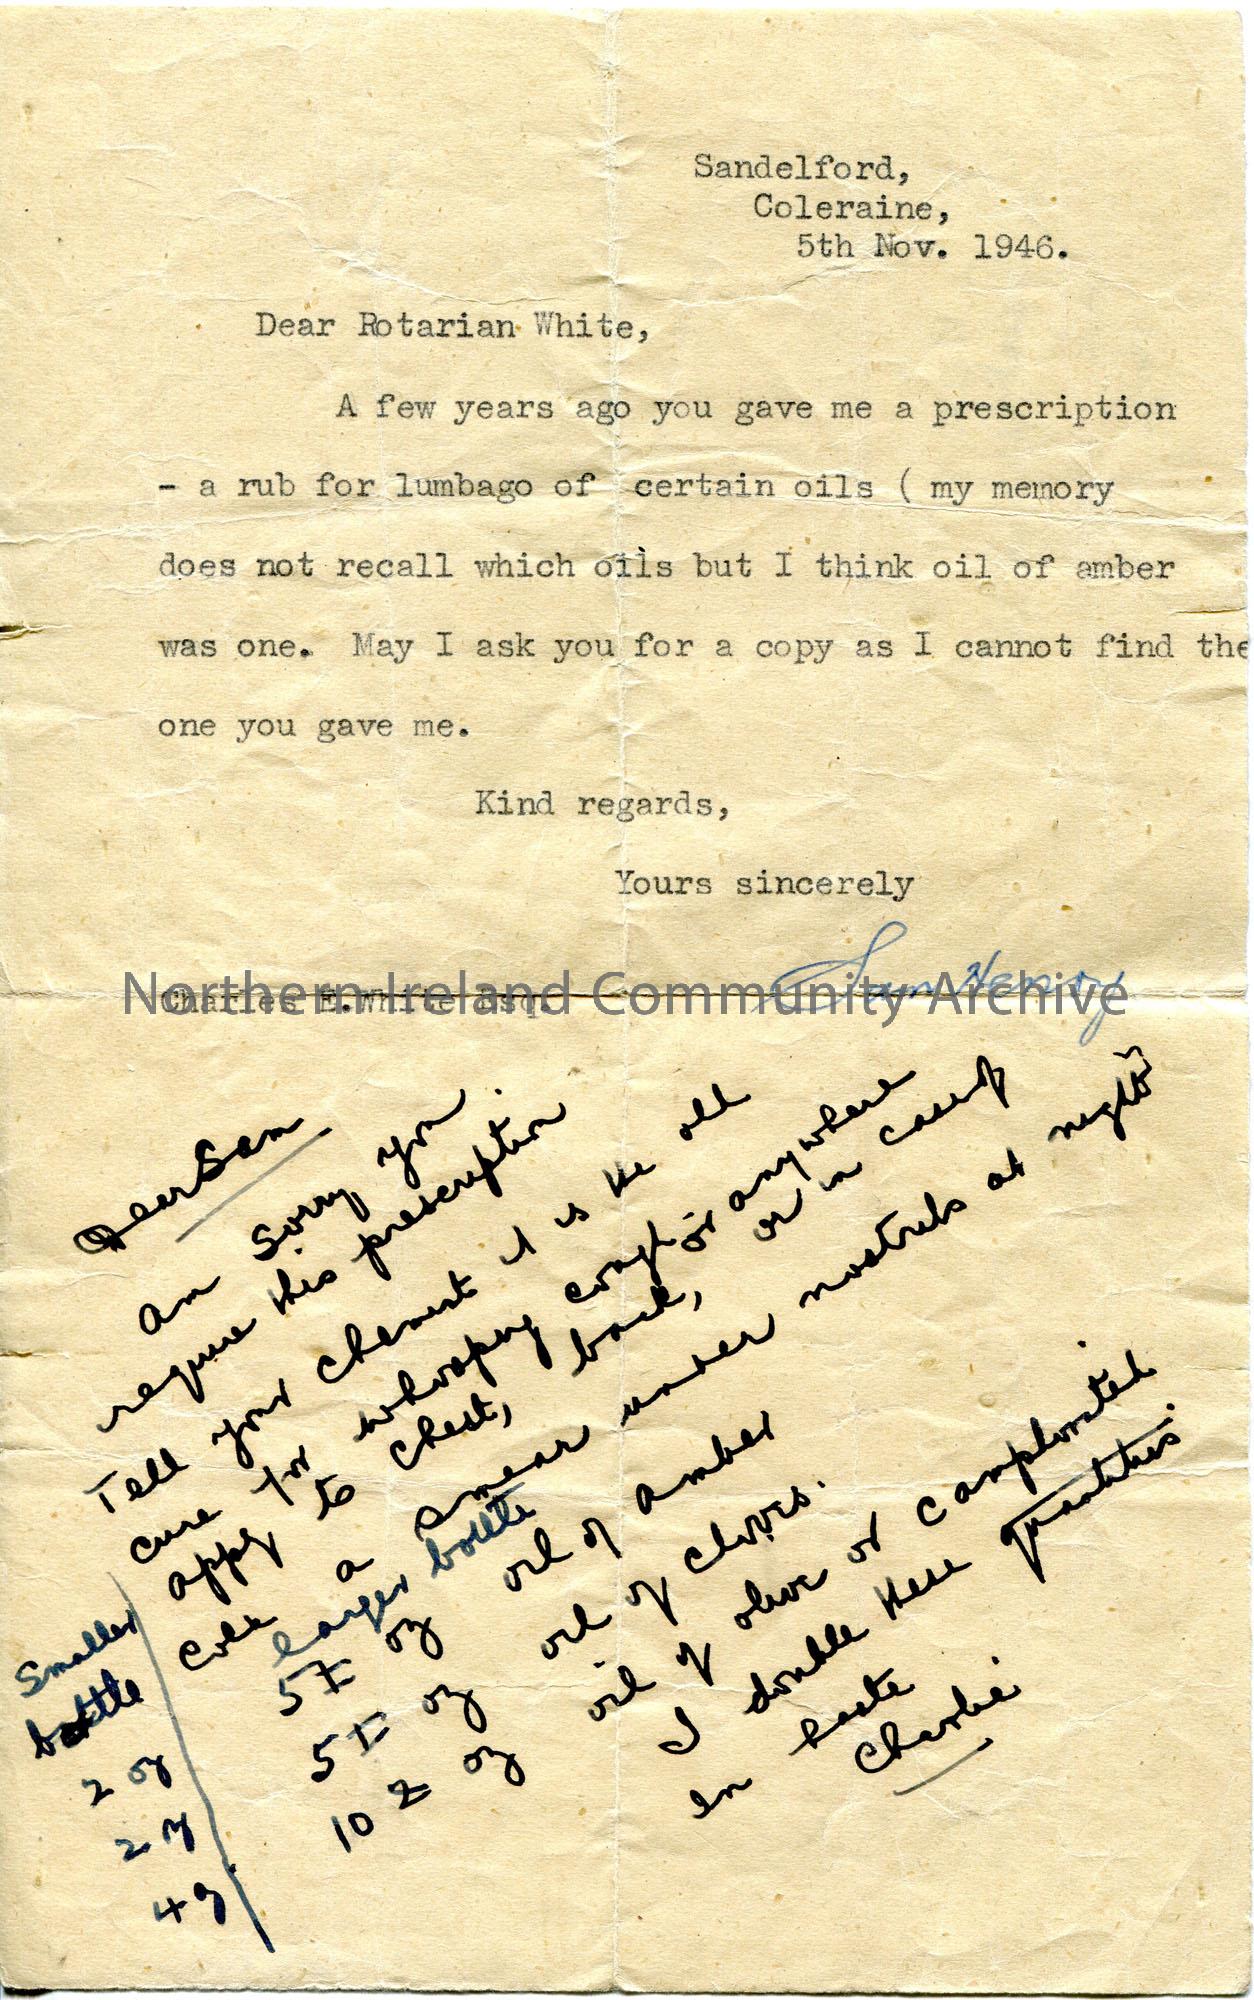 Sandelford,
Coleraine,
5th Nov. 1946.
Dear Rotarian White,
A few years ago you gave me a prescription
- a rub for lumbago of certain oils ( my memory
does not recall which oils but I think oil of amber
was one. May I ask you for a copy as I cannot find the
one you gave me.
Kind regards,
Yours sincerely
Sam Henry
Charles E.White Esq.
Northern Ireland Community Archive
Dear Sam
am sorry you
require this prescription
Tell your chemist it is the old
cure for whooping cough or anywhere
apply to chest, back, or in case of
cold a smear under nostrils at night
larger bottle
5 oz oil of amber
5 oz oil of cloves.
10 oz oil of olive or camphorated
I double these quantities.
In haste
Charlie
Smaller
bottle
2 oz
2 oz
4 oz